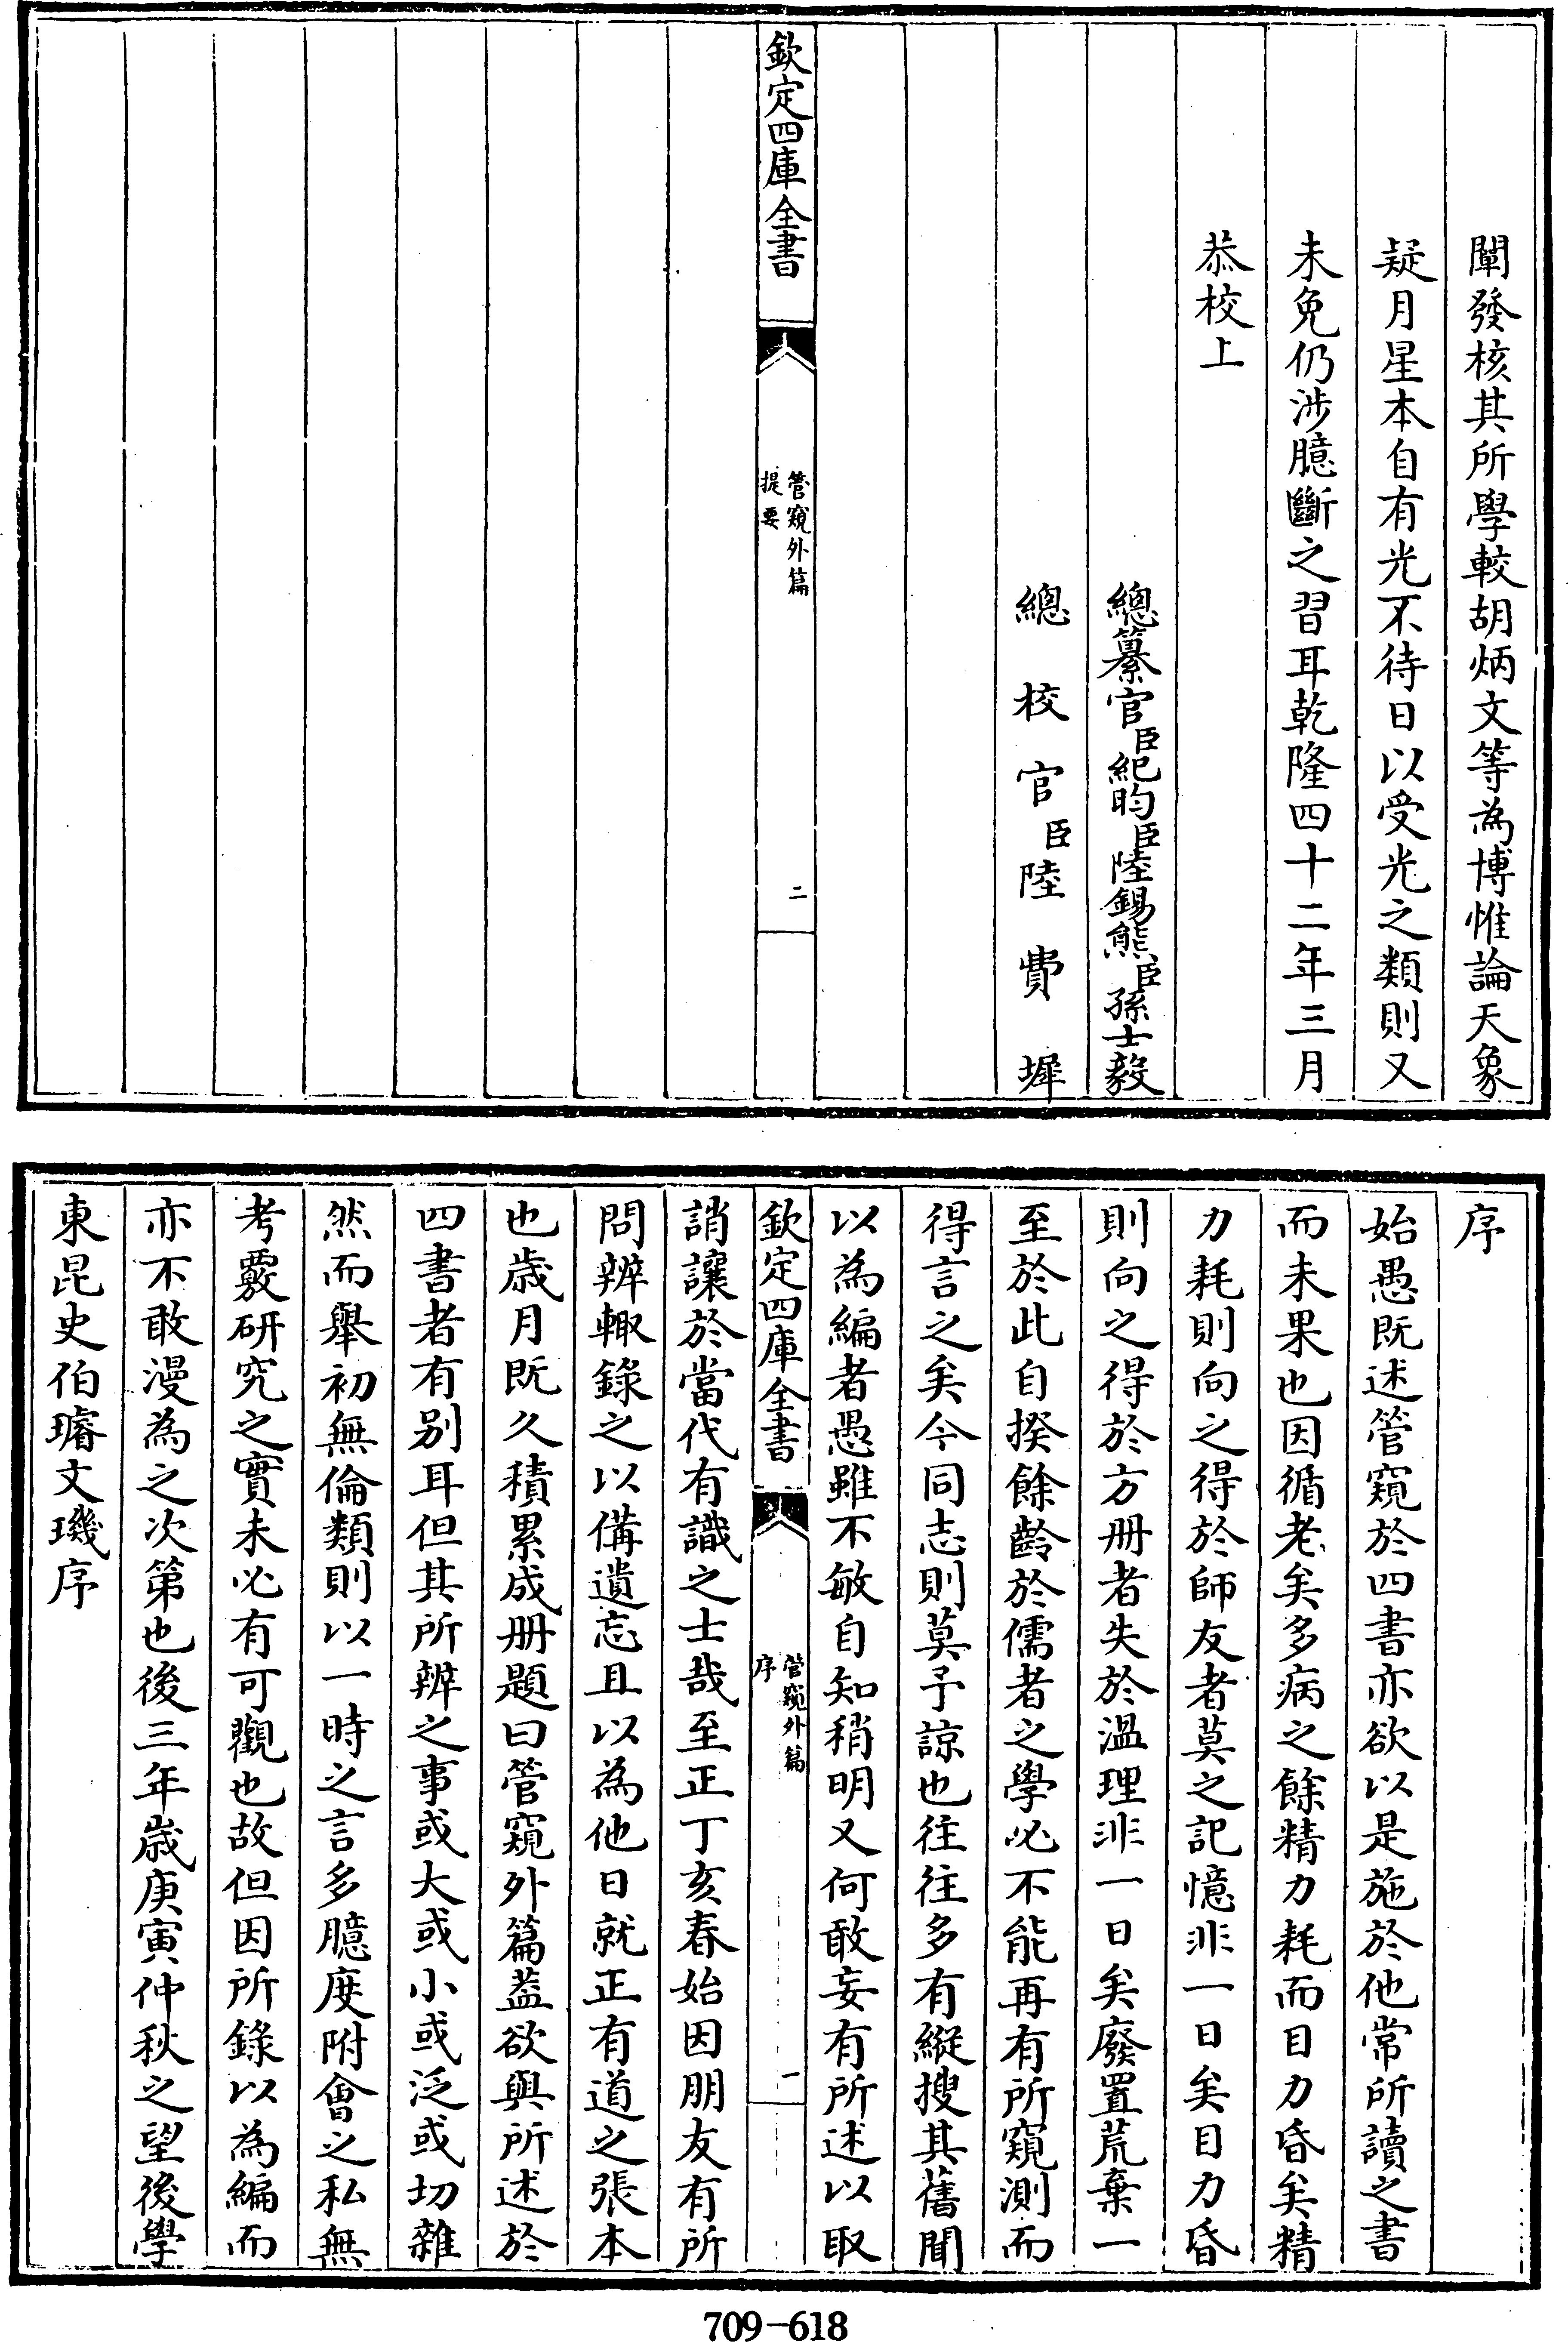 闡發核其所學較胡炳文等為博惟論天象
疑月星本自有光不待日以受光之類則又
未免仍涉臆斷之習耳乾隆四十二年三月
恭校上
總纂官臣紀昀臣陸錫熊臣孫士毅
總校官臣陸費墀
欽定四庫全書
管窺外篇
提要
二
序
始愚既述管窺於四書亦欲以是施於他常所讀之書
而未果也因循老矣多病之餘精力耗而目力昏矣精
力耗則向之得於師友者莫之記憶非一日矣目力昏
則向之得於方冊者失於溫理非一日矣廢置荒棄一
至於此自揆餘齡於儒者之學必不能再有所窺測而
得言之矣今同志則莫予諒也往往多有縱搜其舊聞
以為編者愚雖不敏自知稍明又何敢妄有所述以取
欽定四庫全書
管窺外篇
序
一
誚讓於當代有識之士哉至正丁亥春始因朋友有所
問辨輙錄之以備遺忘且以為他日就正有道之張本
也歳月既久積累成冊題曰管窺外篇葢欲與所述於
四書者有别耳但其所辨之事或大或小或泛或切雜
然而舉初無倫類則以一時之言多臆度附會之私無
考覈研究之實未必有可觀也故但因所錄以為編而
亦不敢漫為之次第也後三年歳庚寅仲秋之望後學
東昆史伯璿文璣序
709-618